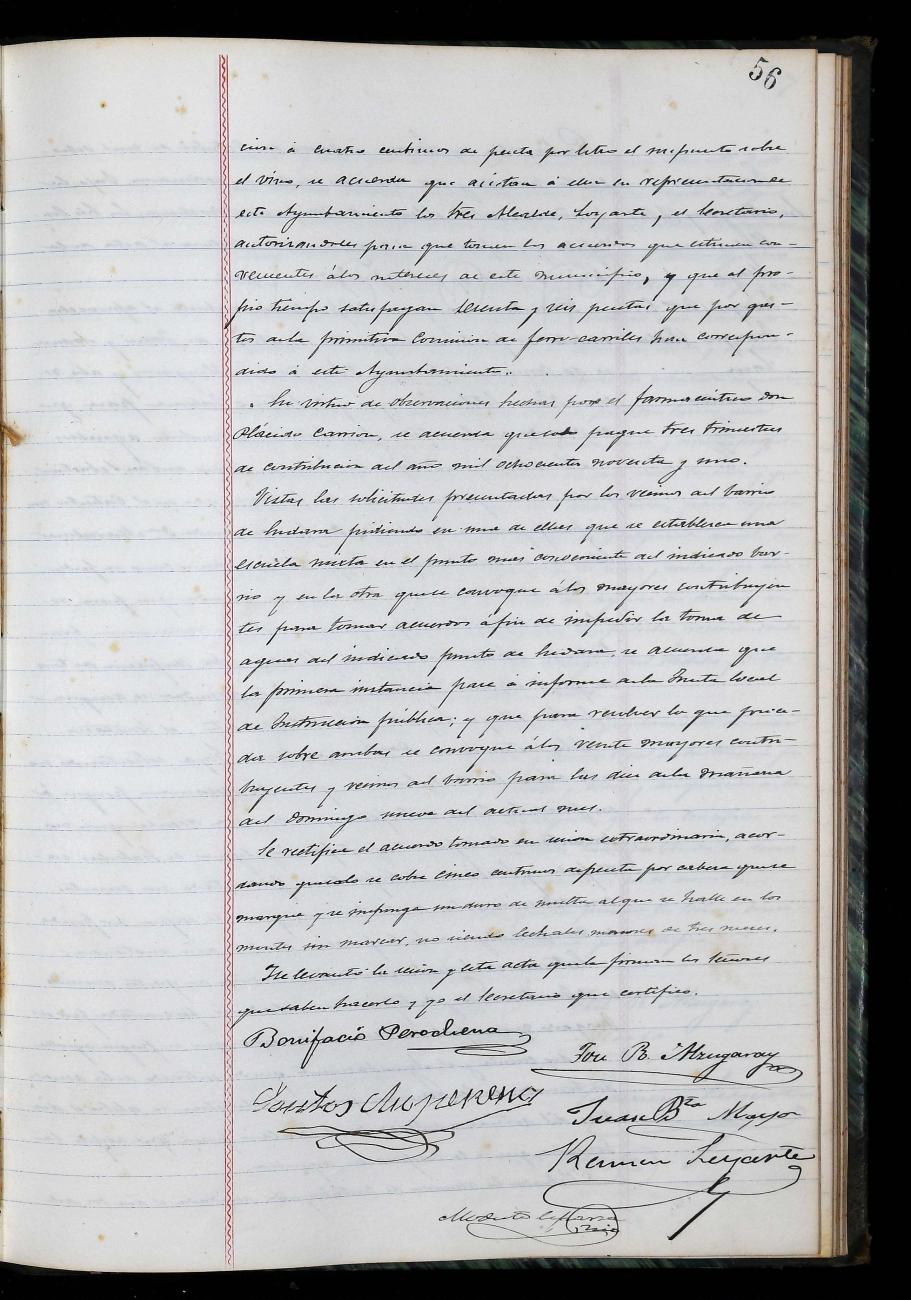 56
cir á cuatro centimos de peseta por litro el impuesto sobre
el vino, se acuerda que asistan á ella en representacion de
este Ayuntamiento los tres Alcalde, Loyarte, y el Secretario,
autorizandoles para que tomen los acuerdos que estimen con-
venientes álos intereses de este municipio, y que al pro-
pio tiempo satisfagan sesenta y seis pesetas que por gas-
tos dela primitiva Comision de ferro-carriles han correspon-
dido á este Ayuntamiento.
En virtud de observaciones hechas por el farmaceutico Don
Plácido Carrion, se acuerda que solo pague tres trimestres
de contribucion del año mil ochocientos noventa y uno.
Vistas las solicitudes presentadas por los vecinos del barrio
de pidiendo en una de ellas que se establezca una
escuela mixta en el punto mas conveniente del indicado bar-
rio y en la otra quese convoque álos mayores contribuyen
tes para tomar acuerdos afin de impedir la toma de
aguas del indicado punto de se acuerda que
la primera instancia pase á informe dela Junta local
de Instruccion pública; y que para resolver lo que proce-
da sobre ambas se convoque álos veinte mayores contri-
buyentes y vecinos del barrio para las diez dela mañana
del Domingo nueve del actual mes.
Se rectifica el acuerdo tomado en sesion extraordinaria, acor-
dando quesolo se cobre cinco centimos depeseta por cabeza quese
marque y se imponga un duro de multa al que se halle en los
montes sin marcar, no siendo lechales menores de tres meses.
Se levantó la sesion y esta acta quela firman los Señores
quesaben hacerlo y yo el Secretario que certifico.
Bonifacio Perochena
José B. Alzugaray
Santos
Juan Bta Mayo
Ramon Loyarte
Modesto